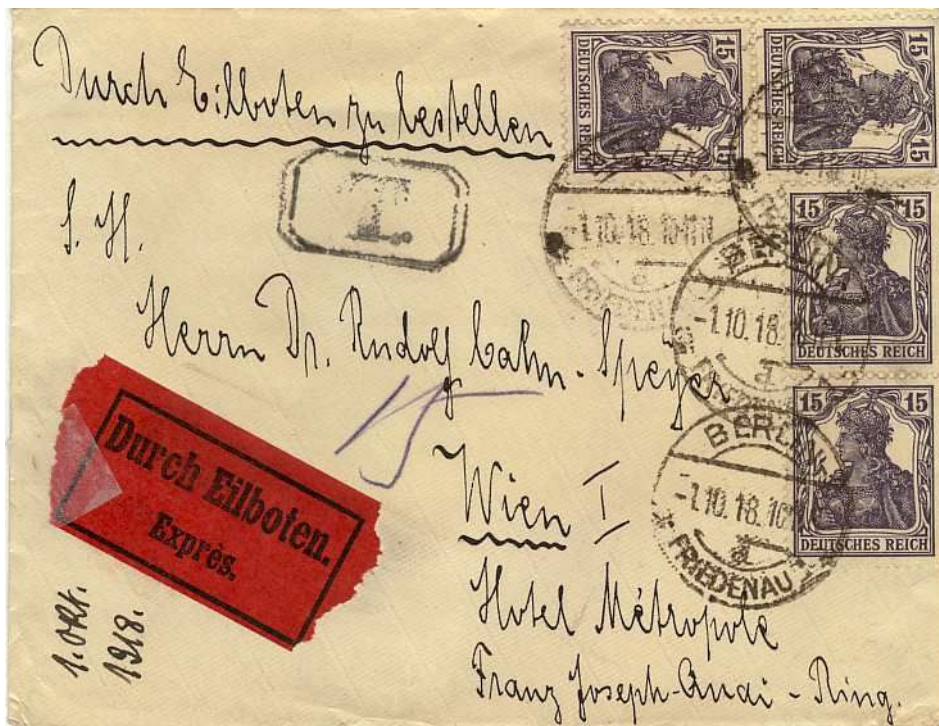 Durch Eilboten zu bestellen
S. H.
Herrn Dr. Rudolf Cahn-Speyer
Wien I
Hotel Métropole
Franz Joseph-Quai-Ring.
Durch Eilboten.
Exprès.
1. Okt.
1918.
T.
15
15 15
DEUTSCHES REICH
15 15
DEUTSCHES REICH
15 15
DEUTSCHES REICH
15
DEUTSCHES REICH
BERLIN
-1.10.18.10
a
FRIEDENAU
BERLIN
-1.10.18.
a
BERLIN
-1.10.18.10
a
* FRIEDENAU